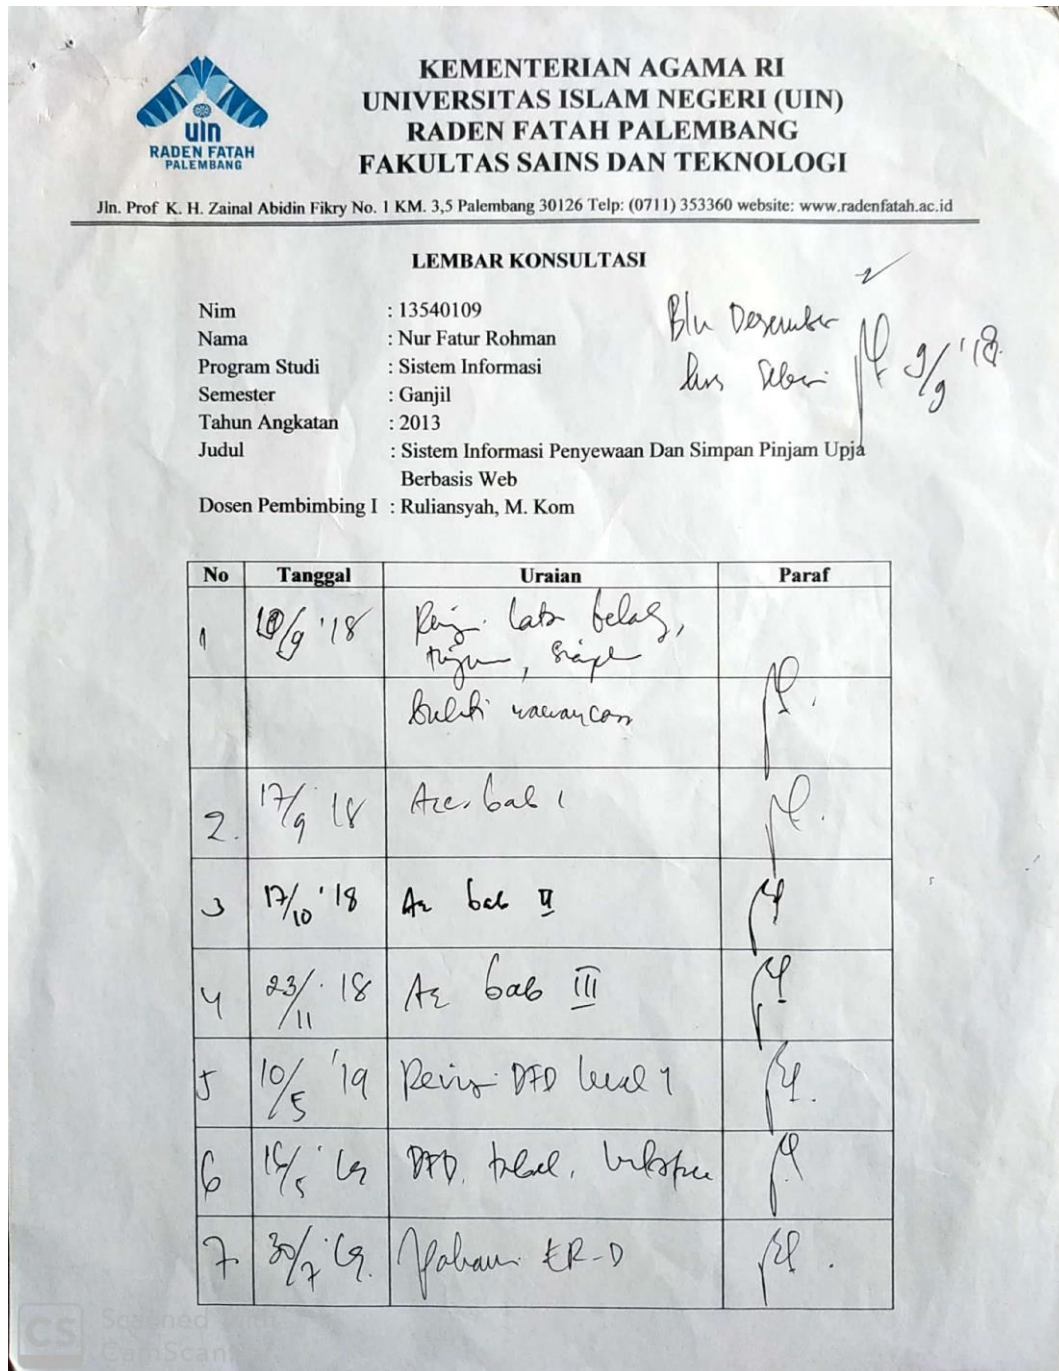 uin
RADEN FATAH
PALEMBANG
KEMENTERIAN AGAMA RI
UNIVERSITAS ISLAM NEGERI (UIN)
RADEN FATAH PALEMBANG
FAKULTAS SAINS DAN TEKNOLOGI
Jln. Prof K. H. Zainal Abidin Fikry No. 1 KM. 3,5 Palembang 30126 Telp: (0711) 353360 website: www.radenfatah.ac.id
LEMBAR KONSULTASI
Nim : 13540109
Nama : Nur Fatur Rohman
Program Studi : Sistem Informasi
Semester : Ganjil
Tahun Angkatan : 2013
Judul : Sistem Informasi Penyewaan Dan Simpan Pinjam Upja
Berbasis Web
Dosen Pembimbing I : Ruliansyah, M. Kom
Bln Desember
9/9 '18
No Tanggal Uraian Paraf
1 10/9 '18 latar belag,
bukti wawancara
2. 17/9 18 Acc. bab 1
3 17/10 '18 Acc bab II
4 23/11 18 Acc bab III
5 10/5 '19 Revisi DFD level 1
6 /5 '19 DFD, tabel,
7. 30/7 19. Pahami ER-D
CS Scanned with
CamScanner